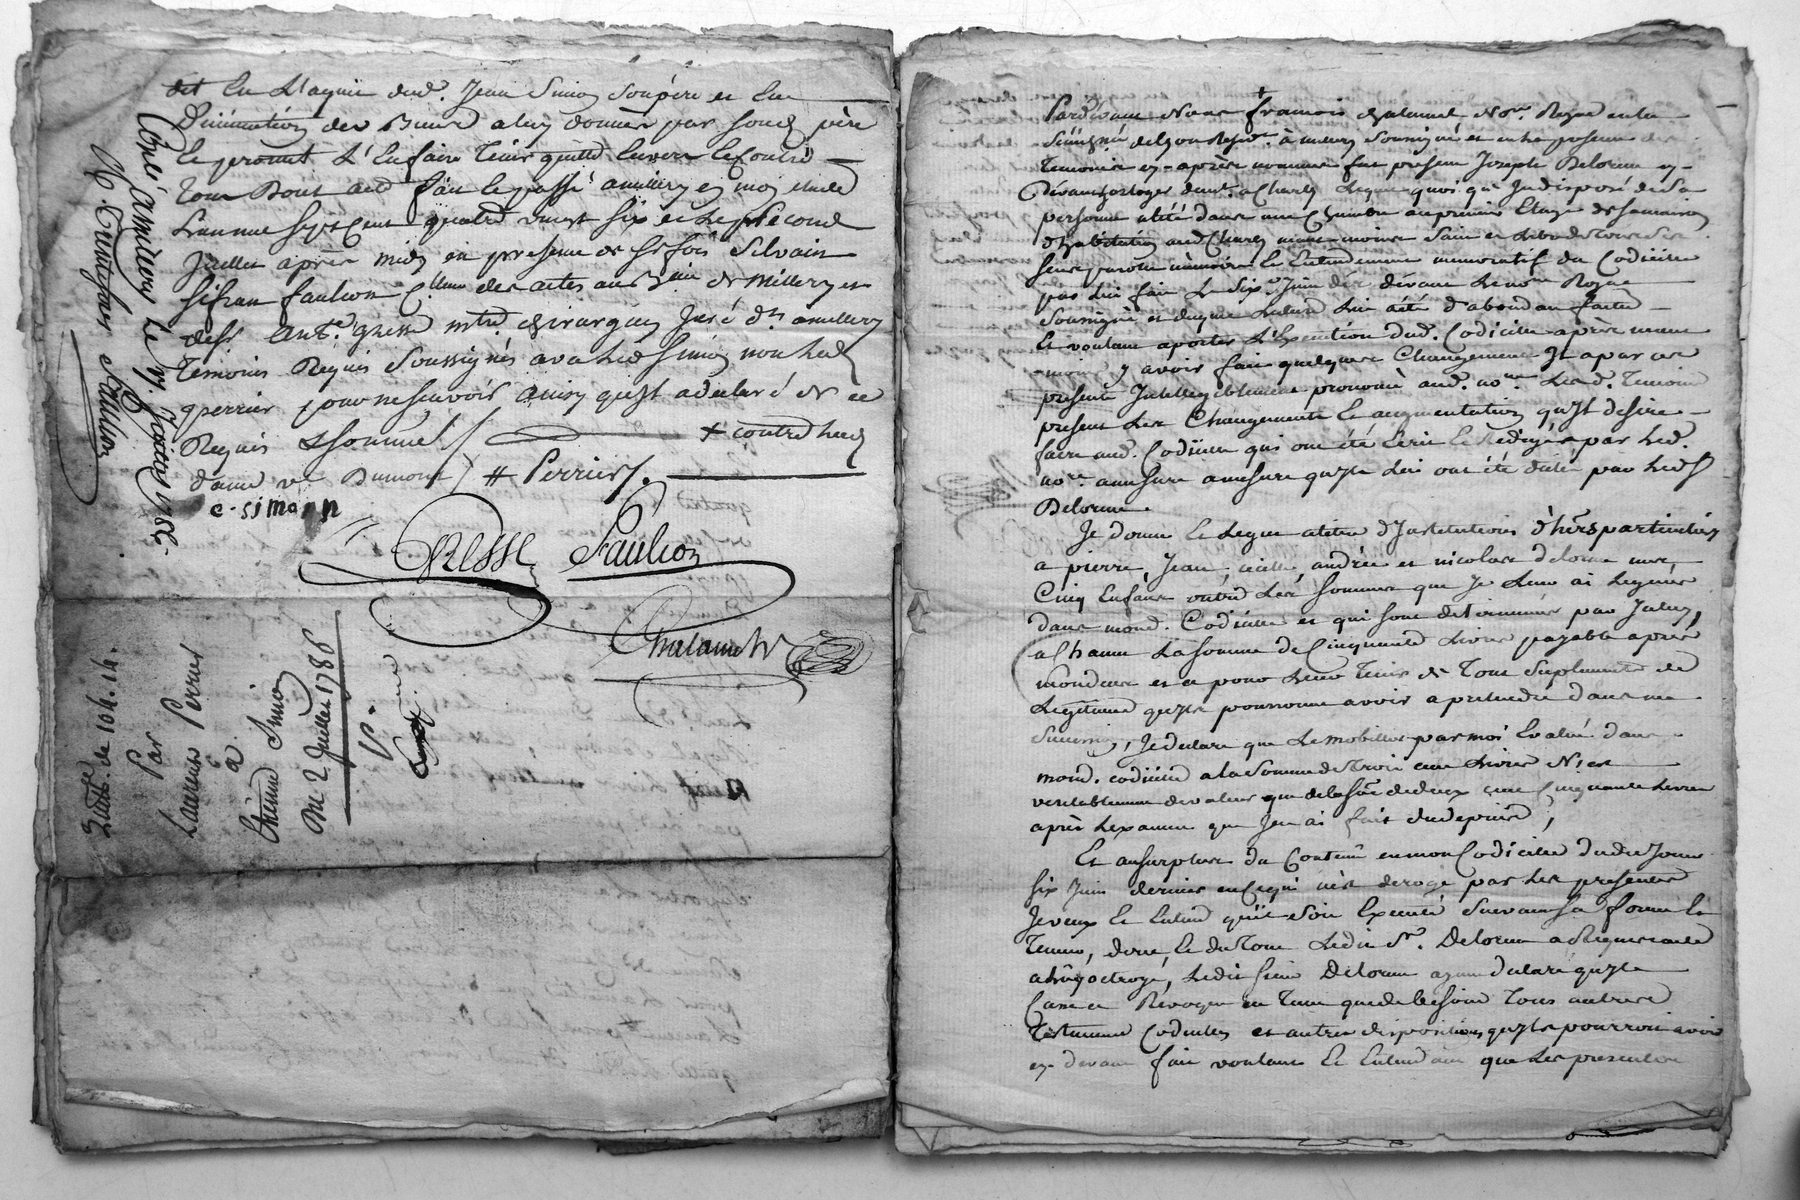 dit en L'aquis dud. Jean Simon Son père et en
Diminution des Biens a luy donnés par sond. père
Le promet L'En faire Tenir quitte Envers Et contre
Tous Dont acte fait et passé a millery en moy Etude
L'an mil sept Cent quatre vingt Six et Le Second
Juillet après midy en presence de Sr fois Silvain
Sifran faulcon Clleur des actes au Bau de Millery et
de Sr Ant.e Gresse mtre chirurgien Juré dt. a millery
Temoins Requis Soussignés avec led Simon non led
perrier pour ne scavoir ainsy qu'il a declaré de ce
Requis & Sommé / + contre led
d'une ve Dumont / # Perrier /.
e. simonn
Gresse Faulcon
Chalamel
Cont.lé à Millery Le
Juillet 1786
R. Trente sous
Faulcon
Quitt.ce de 104. 14.
Par
Laurent Perrier
à
Etienne Simon
Du 2 Juillet 1786
Pardevant Nous francois chalamel No.re Royal en la
Senechaussée de Lyon Resid.t à millery Soussigné et en la presence des
Temoins cy-après nommés fut present Joseph Delorme cy-
devant horloger demt. a Charly Lequel quoi qu'Indisposé de Sa
personne alité dans une Chambre au premier Etage de sa maison
d'habitation aud Charly neant-moins Sain et Libre de tous Ses
sens parolle mémoire Et Entendement memoratif du Codicille
par Lui fait Le Six Juin der. devant Le no.re Royal
Soussigné et duquel Lecture Lui a été d'abord au faite
Et voulant aporter L'Execution dud. Codicille après neant
-moins y avoir fait quelques Changements Il a par ces
presentes Intelligiblement prononcé aud. no.re Les d. Temoins
present Les Changements Et augmentations qu'Il desire
faire aud. Codicille qui ont été Ecrit Et Redigés par Led.
no.re a mesure a mesure qu'ils Lui ont été dicté par Led Sr
Delorme.
Je donne Et Legue a titre d'Institution d'hérs particuliers
a pierre, Jean, cecille, andrée et nicolas delorme mes
Cinq Enfans outre Les Sommes que Je Leur ai Leguées
dans mond. Codicille et qui sont determinées par Iceluy,
a Chacun La somme de Cinquante Livres payable après
mon deces et a pour Leur Tenir de Tout Suplement de
Legitime qu'ils pourroient avoir a pretendre dans ma
Succession, Je declare que Le mobilier par moi Evalué dans
mond. codicille a la Somme de Trois cent Livres N'est
veritablement de valeur que de la So.e de deux cent Cinquante Livres
après L'examen que J'en ai fait du depuis,
Et au surplus du Contenu en mon Codicille dudit Jour
six Juin dernier en Ce qui n'est derogé par Les presentes
Je veux Et Entend qu'il Soit Executé Suivant Sa forme Et
Teneur, dont Et du Tout Ledit Sr. Delorme a Requis acte
a lui octroyé, Ledit Sieur Delorme ayant declaré qu'il
Casse et Revoque en Tant que de besoin Tous autres
Testaments Codicilles et autres dispositions qu'il pourroit avoir
cy-devant fait voulant Et Entendant que Les presentes